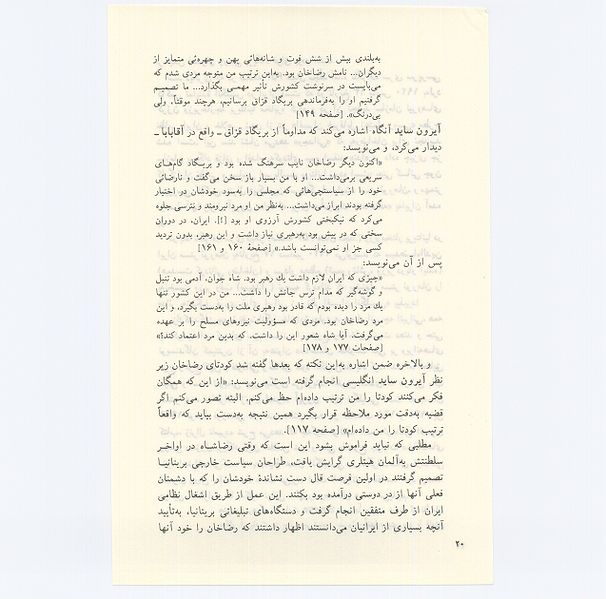 به‌بلندی بیش از شش فوت و شانه‌هائی پهن و چهره‌ئی متمایز از
دیگران... نامش رضاخان بود. به‌این ترتیب من متوجه مردی شدم که
می‌بایست در سرنوشت کشورش تأثیر مهمی بگذارد... ما تصمیم
گرفتیم او را به‌فرماندهی بریگاد قزاق برسانیم، هرچند موقتاً، ولی
بی‌درنگ». [صفحه ۱۴۹]
آیرون ساید آنگاه اشاره می‌کند که مداوماً از بریگاد قزاق ـ واقع در آقابابا ـ
دیدار می‌کرد، و می‌نویسد:
«اکنون دیگر رضاخان نایب سرهنگ شده بود و بریگاد گام‌های
سریعی برمی‌داشت... او با من بسیار باز سخن می‌گفت و نارضائی
خود را از سیاستچی‌هائی که مجلس را به‌سود خودشان در اختیار
گرفته بودند ابراز می‌داشت... به‌نظر من او مرد نیرومند و نترسی جلوه
می‌کرد که نیکبختی کشورش آرزوی او بود [!]. ایران، در دوران
سختی که در پیش بود به‌رهبری نیاز داشت و این رهبر، بدون تردید
کسی جز او نمی‌توانست باشد.» [صفحهٔ ۱۶۰ و ۱۶۱]
پس از آن می‌نویسد:
«چیزی که ایران لازم داشت یك رهبر بود. شاه جوان، آدمی بود تنبل
و گوشه‌گیر که مدام ترس جانش را داشت... من در این کشور تنها
یك مرد را دیده بودم که قادر بود رهبری ملت را به‌دست بگیرد، و این
مرد رضاخان بود. مردی که مسؤولیت نیروهای مسلح را بر عهده
می‌گرفت. آیا شاه شعور این را داشت، که بدین مرد اعتماد کند؟»
[صفحات ۱۷۷ و ۱۷۸]
و بالاخره ضمن اشاره به‌این نکته که بعدها گفته شد کودتای رضاخان زیر
نظر آیرون ساید انگلیسی انجام گرفته است می‌نویسد: «از این که همگان
فکر می‌کنند کودتا را من ترتیب داده‌ام حظ می‌کنم. البته تصور می‌کنم اگر
قضیه به‌دقت مورد ملاحظه قرار بگیرد همین نتیجه به‌دست بیاید که واقعاً
ترتیب کودتا را من داده‌ام» [صفحه ۱۱۷].
مطلبی که نباید فراموش بشود این است که وقتی رضاشاه در اواخر
سلطنتش به‌آلمان هیتلری گرایش یافت، طراحان سیاست خارجی بریتانیا
تصمیم گرفتند در اولین فرصت قال دست نشاندهٔ خودشان را که با دشمنان
فعلی آنها از در دوستی درآمده بود بکنند. این عمل از طریق اشغال نظامی
ایران از طرف متفقین انجام گرفت و دستگاه‌های تبلیغاتی بریتانیا، به‌تأیید
آنچه بسیاری از ایرانیان می‌دانستند اظهار داشتند که رضاخان را خود آنها
۲۰